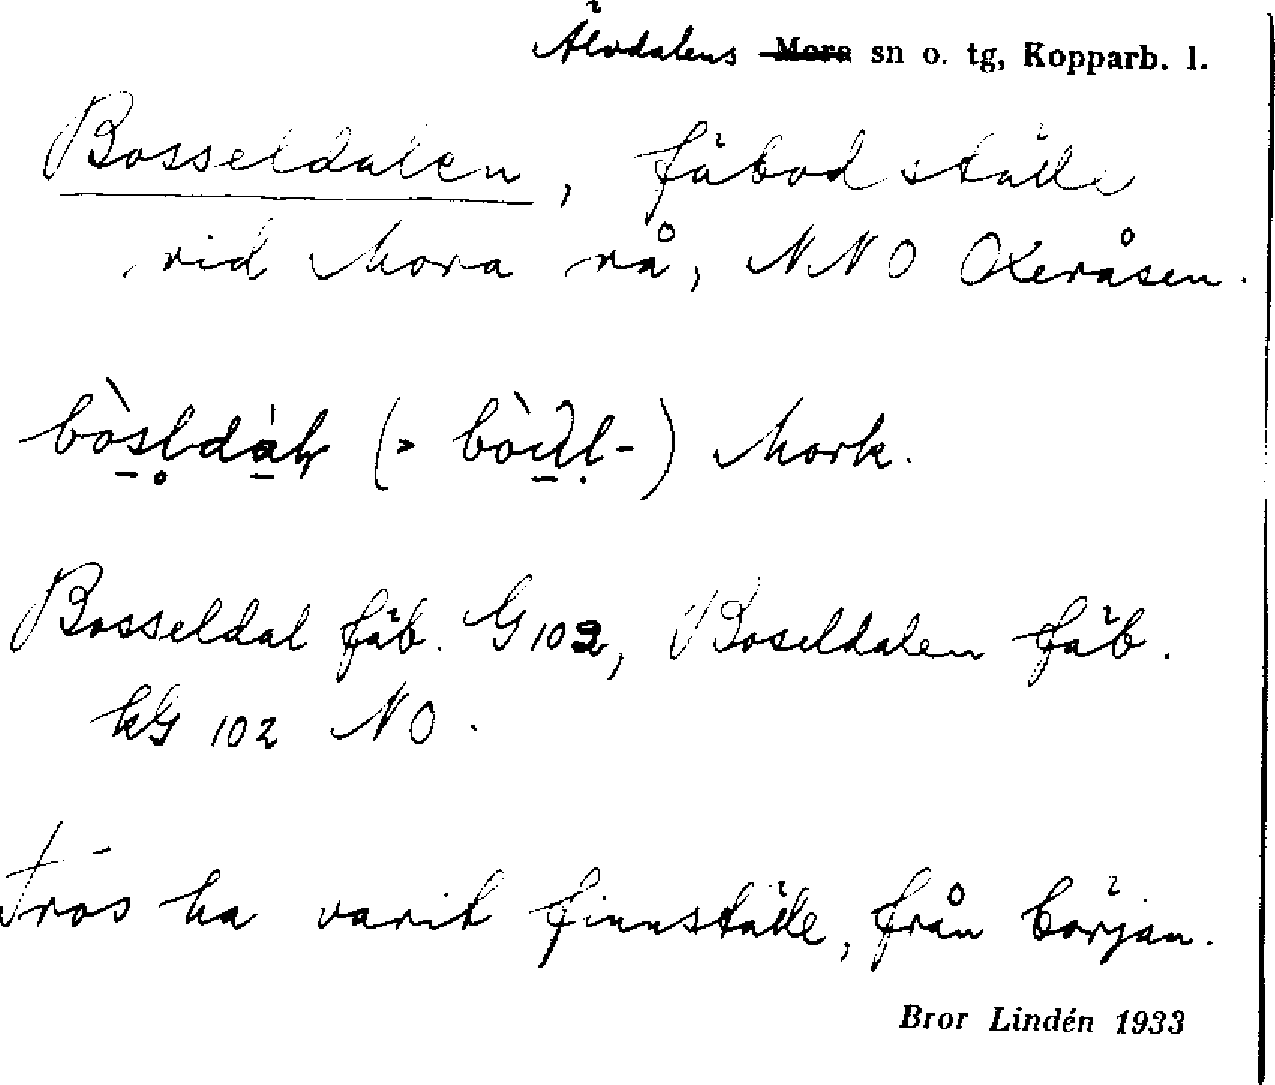 Älvdalens Mora sn o. tg, Kopparb. l.
Bosseldalen, fäbodställe
vid Mora rå, NNO Oxeråsen.
Mork.
Bosseldal fäb. G 102, Boseldalen fäb.
kG 102 NO.
Tros ha varit finnställe, från början.
Bror Lindén 1933